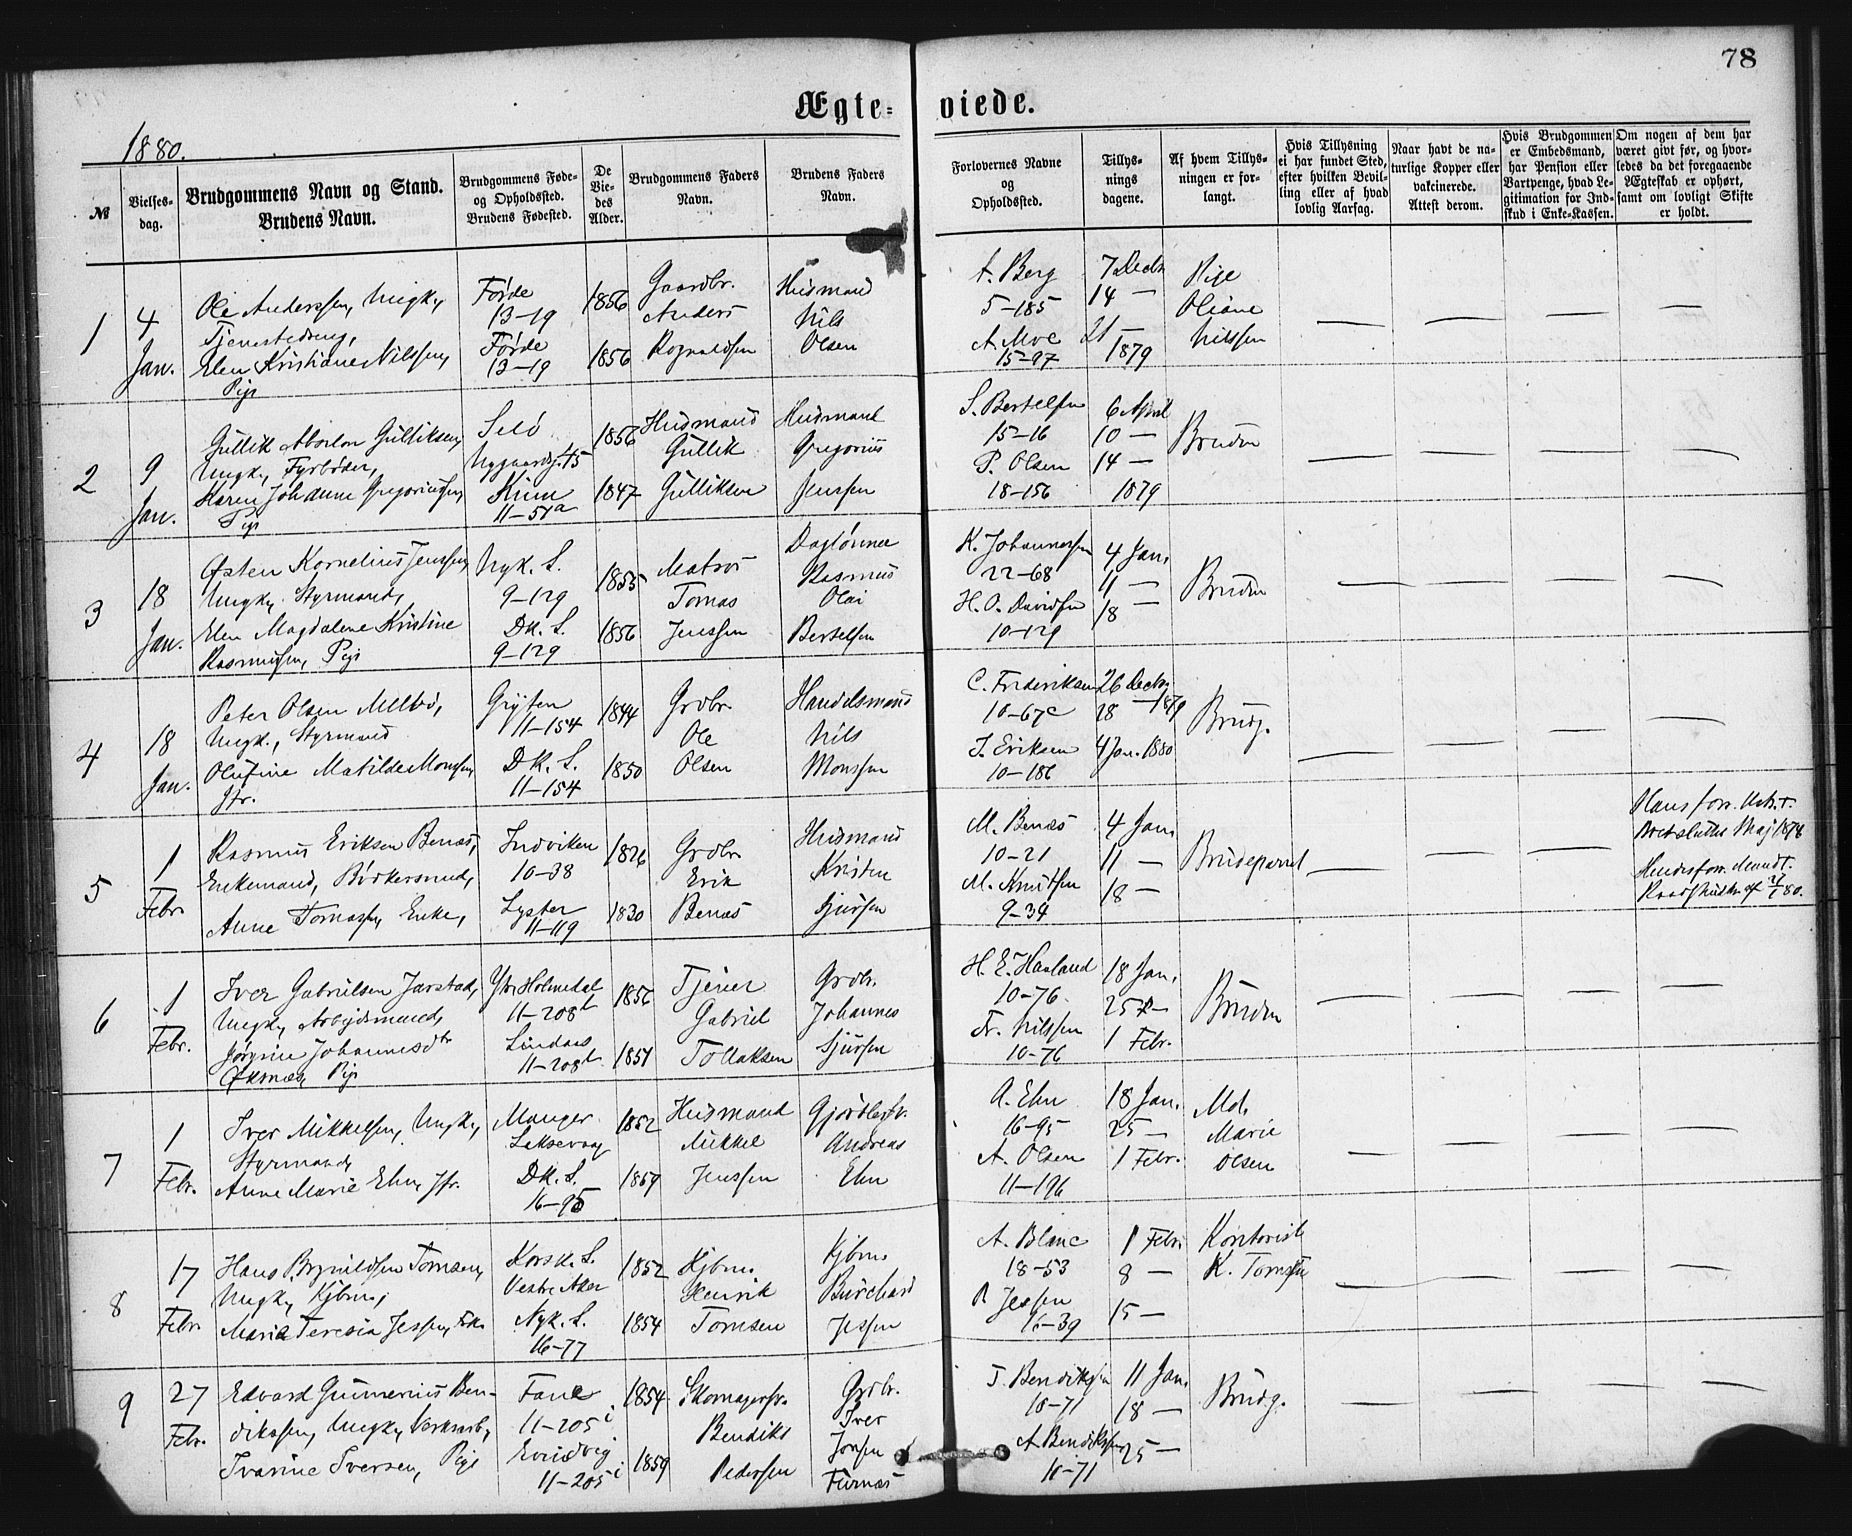 78
Ægte-
viede.
1880.
№
Vielses-
dag.
Brudgommens Navn og Stand.
Brudens Navn.
Brudgommens Føde-
og Opholdssted.
Brudens Fødested.
De
Vie-
des
Alder.
Brudgommens Faders
Navn.
Brudens Faders
Navn.
Forlovernes Navne
og
Opholdssted.
Tillys-
nings
dagene.
Af hvem Tillys-
ningen er for-
langt.
Hvis Tillysning
ei har fundet Sted,
efter hvilken Bevil-
ling eller af hvad
lovlig Aarsag.
Naar havt de na-
turlige Kopper eller
vakcinerede.
Attest derom.
Hvis Brudgommen
er Embedsmand,
har Pension eller
Vartpenge, hvad Le-
gitimation for Ind-
skud i Enke-Kassen.
Om nogen af dem har
været givt før, og hvor-
ledes da det foregaaende
Ægteskab er ophørt,
samt om lovligt Skifte
er holdt.
1
4
Jan.
Ole Anderssen, Ungk,
Tjenestedreng,
Elen Kristiane Nilssen,
Pige
Førde
13-19
Førde
12-19
1856
1856
Gaardbr.
Anders
Rognaldsen
Husmand
Nils
Olsen
A. Berg
5-185
A. Moe
15-97
7 Decbr
14 —
21 —
1879
Pige
Oliane
Nilssen
2
9
Jan.
Gullik Absalon Gulliksen,
Ungk, Fyrbøder,
Karen Johanne Gregoriussen,
Pige
Selø
Nygaardsg. 45
Kinn
11-51a
1856
1847
Husmand
Gullik
Gulliksen
Husmand
Gregorius
Jenssen
S. Bertelsen
15-16
P. Olsen
18-156
6 April
10 —
14 —
1879
Bruden
3
18
Jan.
Østen Kornelius Jenssen,
Ungk, Styrmand,
Elen Magdalene Kristine
Rasmussen, Pige
Nyk. S.
9-129
DK. S.
9-129
1855
1856
Matros
Tomas
Jenssen
Daglønner
Rasmus
Olai
Bertelsen
K. Johannessen
22-68
H. O. Davidsen
10-129
4 Jan.
11 —
18 —
Bruden
4
18
Jan.
Peter Olsen Melbø,
Ungk., Styrmand
Olufine Matilde Monsen,
Jfr.
Gryten
11-154
DK. S.
11-154
1844
1850
Grdbr.
Ole
Olsen
Handelsmand
Nils
Monssen
C. Frederiksen
10-67c
J. Eriksen
10-186
26 Decbr.
28 — 1879
4 Jan. 1880
Brudg.
5
1
Febr
Rasmus Eriksen Benæs,
Enkemand, Bødkersvend,
Anne Tomassen, Enke,
Indviken
10-38
Lyster
11-119
1826
1830
Grdbr.
Erik
Benæs
Husmand
Kristen
Sjursen
M. Benæs
10-21
M. Knutsen
9-34
4 Jan.
11 —
18 —
Brudeparret
Hans forr.
Maj 1878.
Hendes forr. Mand †.
6
1
Febr.
Iver Gabrielsen Jarstad,
Ungk, Arbejdsmand,
Jørgine Johannesdtr
Øksnæs, Pige
Ytr. Holmedal
11-208b
Lindaas
11-208b
1856
1851
Tjener
Gabriel
Tollaksen
Grdbr.
Johannes
Sjursen
H. E. Haaland
10-76.
Fr. Nilssen
10-76
18 Jan.
25 —
1 Febr.
Bruden
7
1
Febr.
Iver Mikkelsen, Ungk,
Styrmand,
Anne Marie Ehn, Jfr.
Manger
Leksevaag
DK. S.
16-95
1852
1859
Husmand
Mikkel
Jenssen
Gjørtlersv.
Andreas
Ehn
A. Ehn
16-95
A. Olsen
11-196
18 Jan.
25 —
1 Febr.
Md.
Marie
Olsen
8
17
Febr
Hans Brynildsen Tomsen,
Ungk, Kjbm.,
Marie Teresia Jessen,
Korsk. S.
Vestre Aker
Nyk. S.
16-77
1852
1854
Kjbm.
Henrik
Tomsen
Kjbm.
Burchard
Jessen
A. Blanc
18-53
P. Jessen
16-39
1 Febr.
8 —
15 —
Kontorist
K. Tomsen
9
27
Febr.
Edvard Gunnerius Ben-
dikssen, Ungk, Værksarb,
Ivarine Iversen, Pige
Fane
11-205i
Evindvig
11-205i
1854
1859
Skomagersv.
Bendiks
Pederssen
Grdbr.
Iver
Jonsen
Furnæs
T. Bendiksen
10-71
A. Bendikssen
10-71
11 Jan.
18 —
25 —
Brudg.